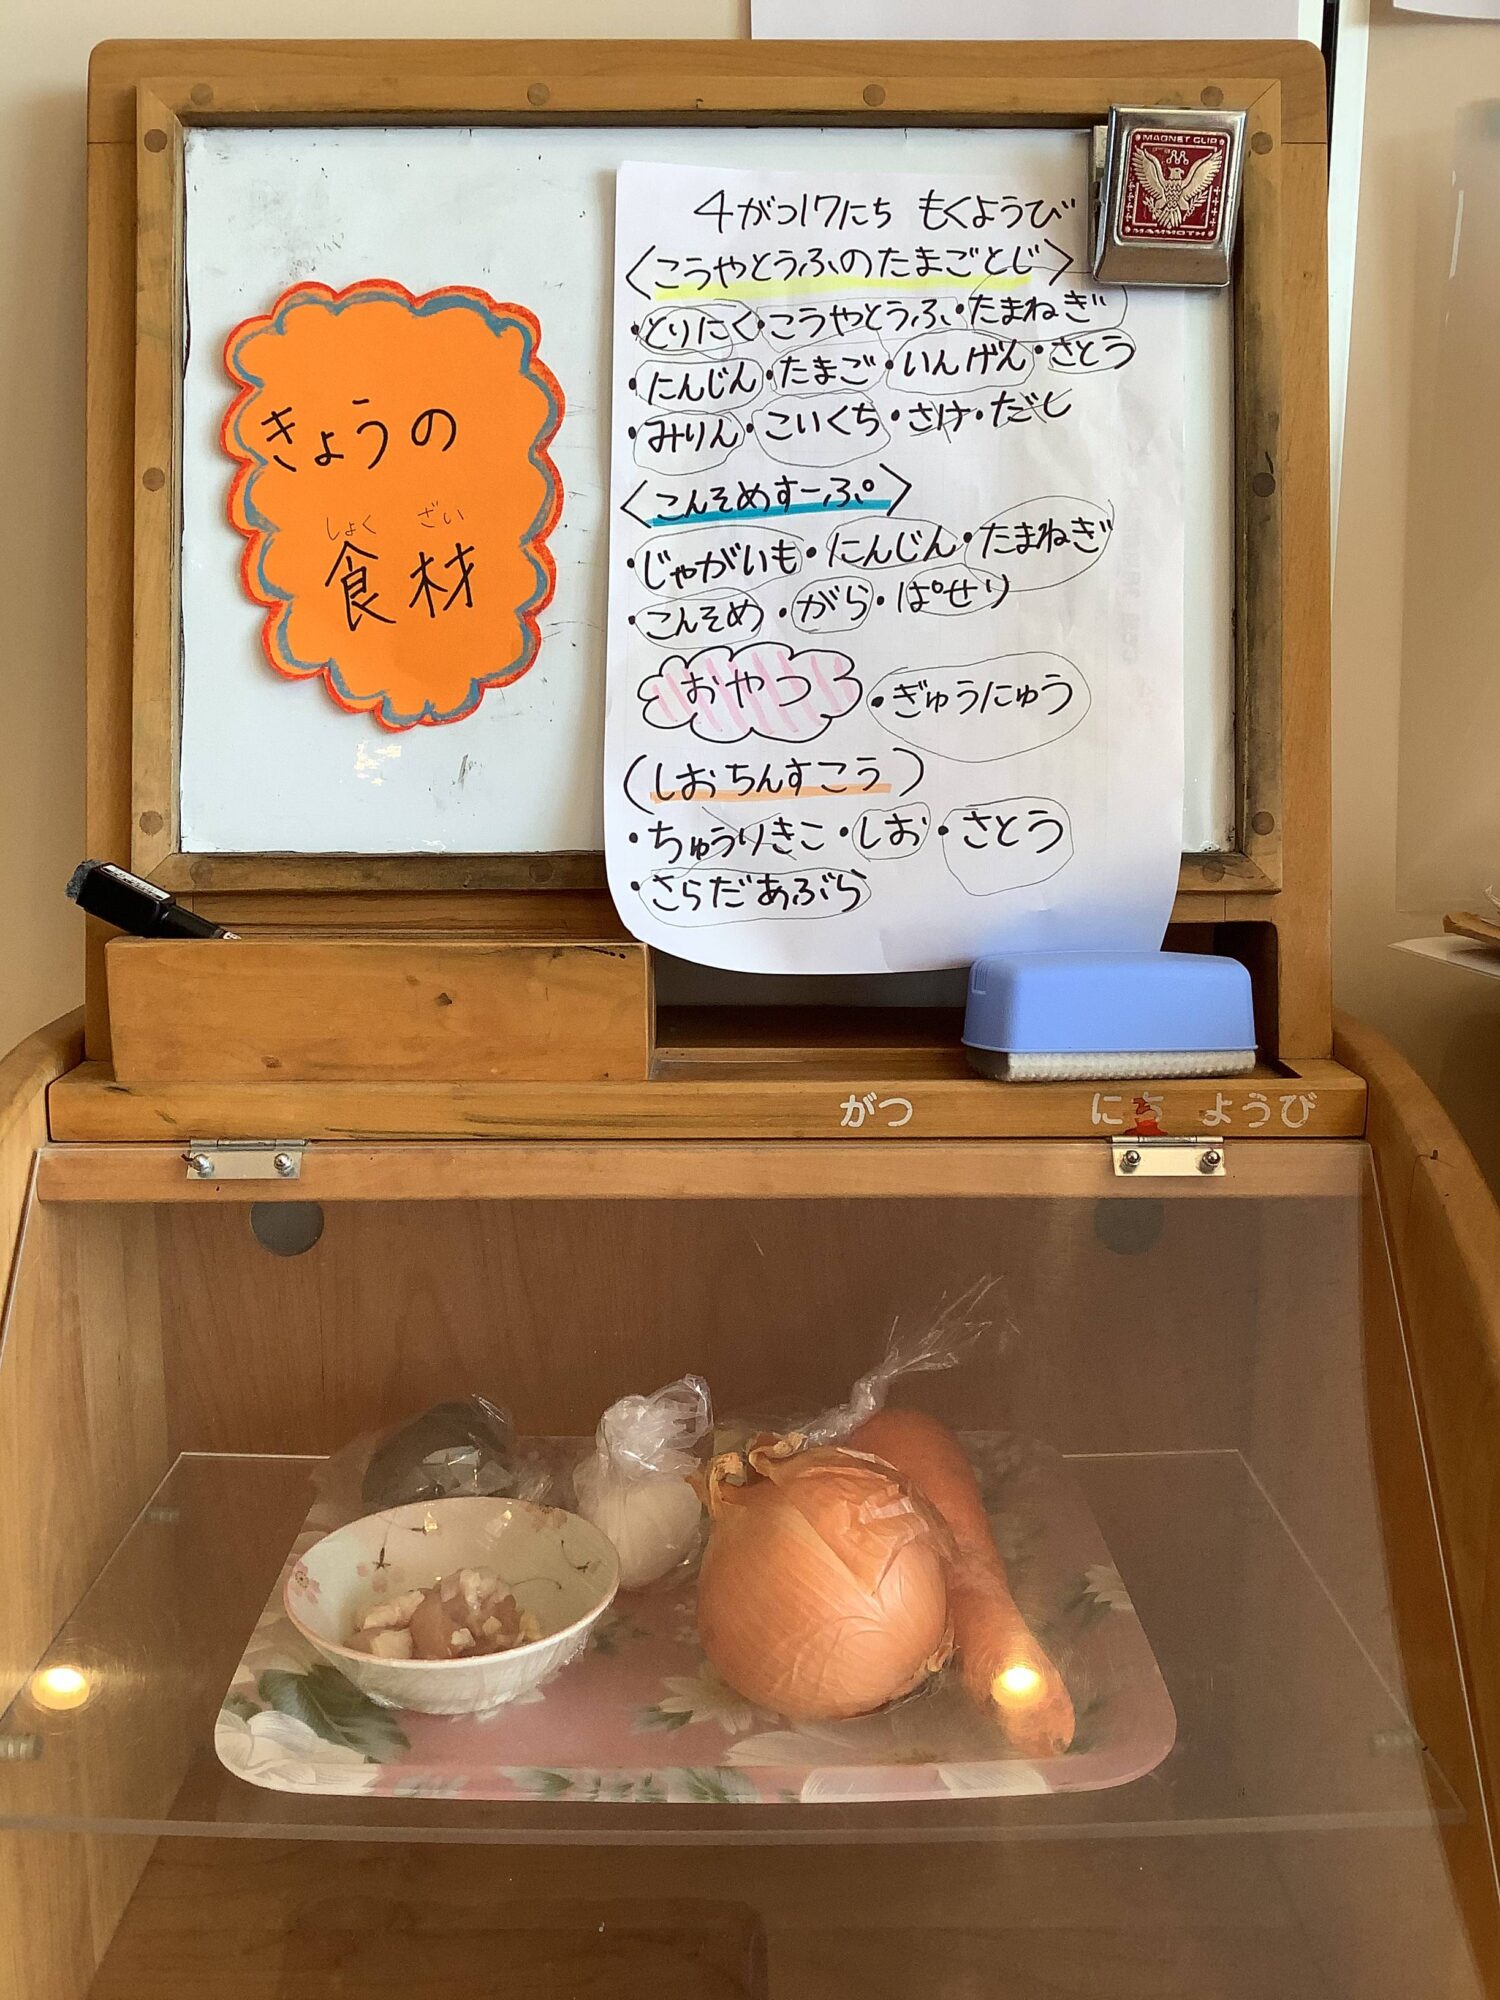 きょうの
しょく ざい
食材
4がつ17にち もくようび
〈こうやとうふのたまごとじ〉
・とりにく・こうやとうふ・たまねぎ
・にんじん・たまご・いんげん・さとう
・みりん・こいくち・さけ・だし
〈こんそめすーぷ〉
・じゃがいも・にんじん・たまねぎ
・こんそめ・がら・ぱせり
おやつ ・ぎゅうにゅう
(しおちんすこう)
・ちゅうりきこ・しお・さとう
・さらだあぶら
MAGNET CLIP
MAMMOTH
がつ にち ようび